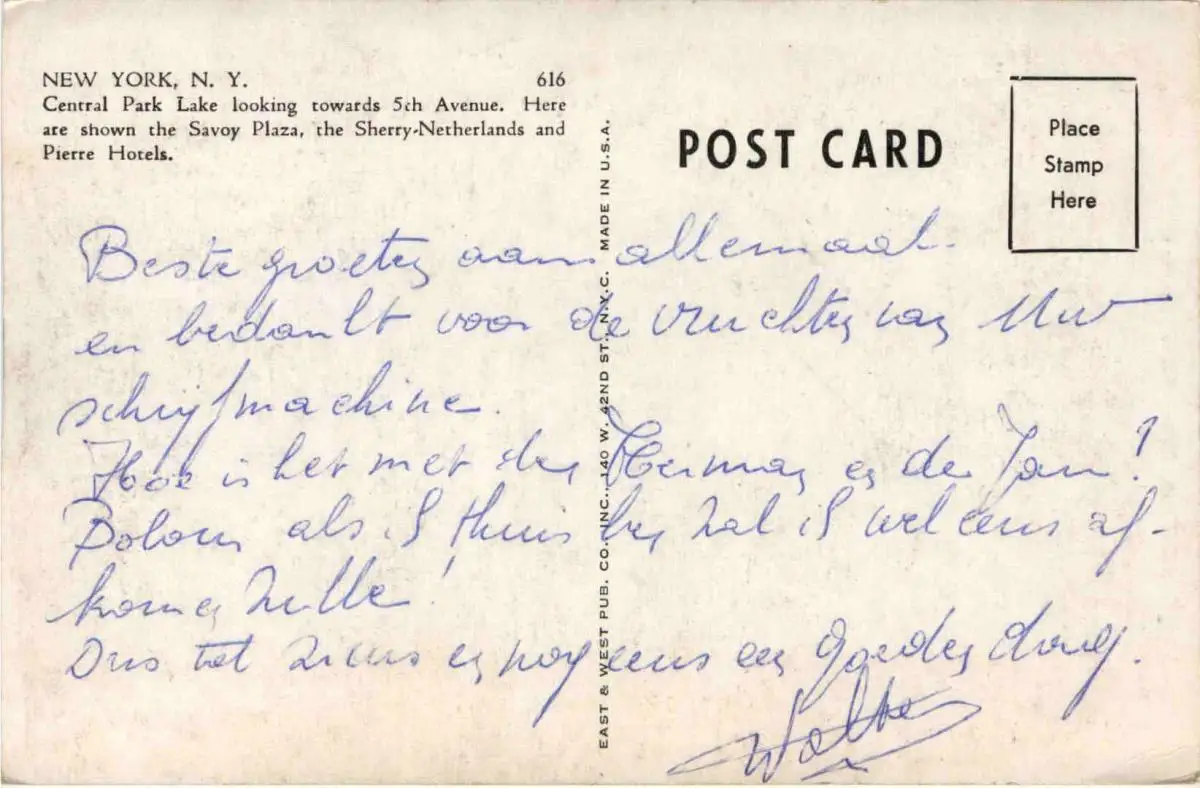 NEW YORK, N. Y. 616
Central Park Lake looking towards 5th Avenue. Here
are shown the Savoy Plaza, the Sherry-Netherlands and
Pierre Hotels.
EAST & WEST PUB. CO. INC., 140 W. 42ND ST. N.Y.C. MADE IN U.S.A.
POST CARD
Place
Stamp
Here
Beste groeten aan allemaal.
en bedankt voor de vruchten van Uw
schrijfmachine.
Hoe is het met den Herman en de Jan!
als ik thuis ben zal ik wel eens af-
komen zulle!
Dus tot ziens en nog eens een goeden dag.
Walter